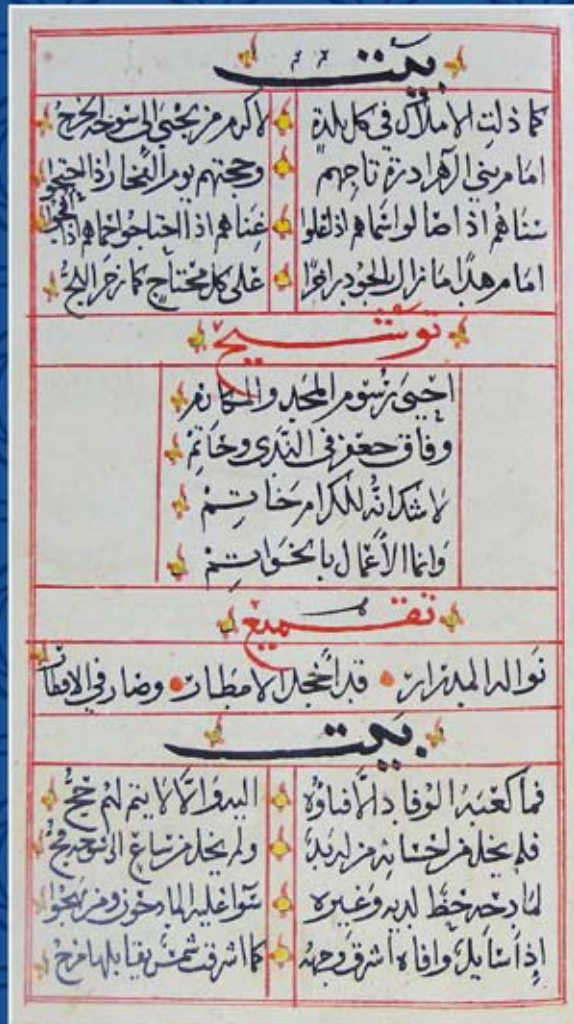 بيت
كما ذلت الاملاك في كل بلدة لاكرم من يجبى الى سوحه الخرج
امام بني الزهرا درة تاجهم وحجتهم يوم الفخار اذا احتجوا
سناهم اذا صالوا سماهم اذا علوا غناهم اذا احتاجوا حماهم اذا
امام هدا ما زال للجود زاخرا على كل محتاج كما زخر اللج
توشيح
احيى رسوم المجد والمكارم
وفاق جعفر في الندى وحاتم
لا شك انه للكرام خاتم
وانما الأعمال بالخواتم
تقميع
نواله المدرار • قد أخجل الامطار • وصار في الاقطار
بيت
فما كعبة الوفاد الا فناؤه اليه والا لا يتم لهم حج
فلم يخل من احسانه من له يد ولم يخل من ساع الى سوحه فج
لمادحه حظ لديه وغيره سوا عليه المادحون ومن يهجوا
إذا سايل وافاه اشرق وجهه كما اشرقت شمس يقابلها